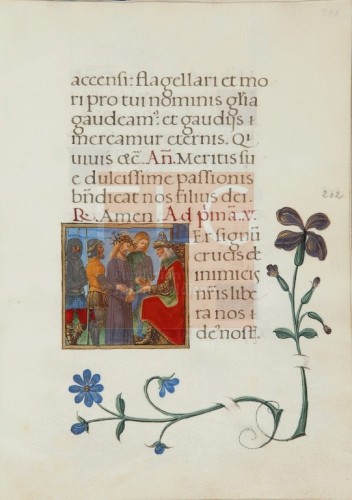 accensi: flagellari et mo
ri pro tui nominis gl̃ia
gaudeam᷒: et gaudijs i
mercamur eternis. Qi
uiuis ⁊c̃. Añ. Meritis su
e dulcissime passionis
bñdicat nos filius dei.
R. Amen. Ad pimã. v.
Per signũ
crucis de
inimicis
nr̃is libe
ra nos i
de᷒ nost̃.
202
FLG